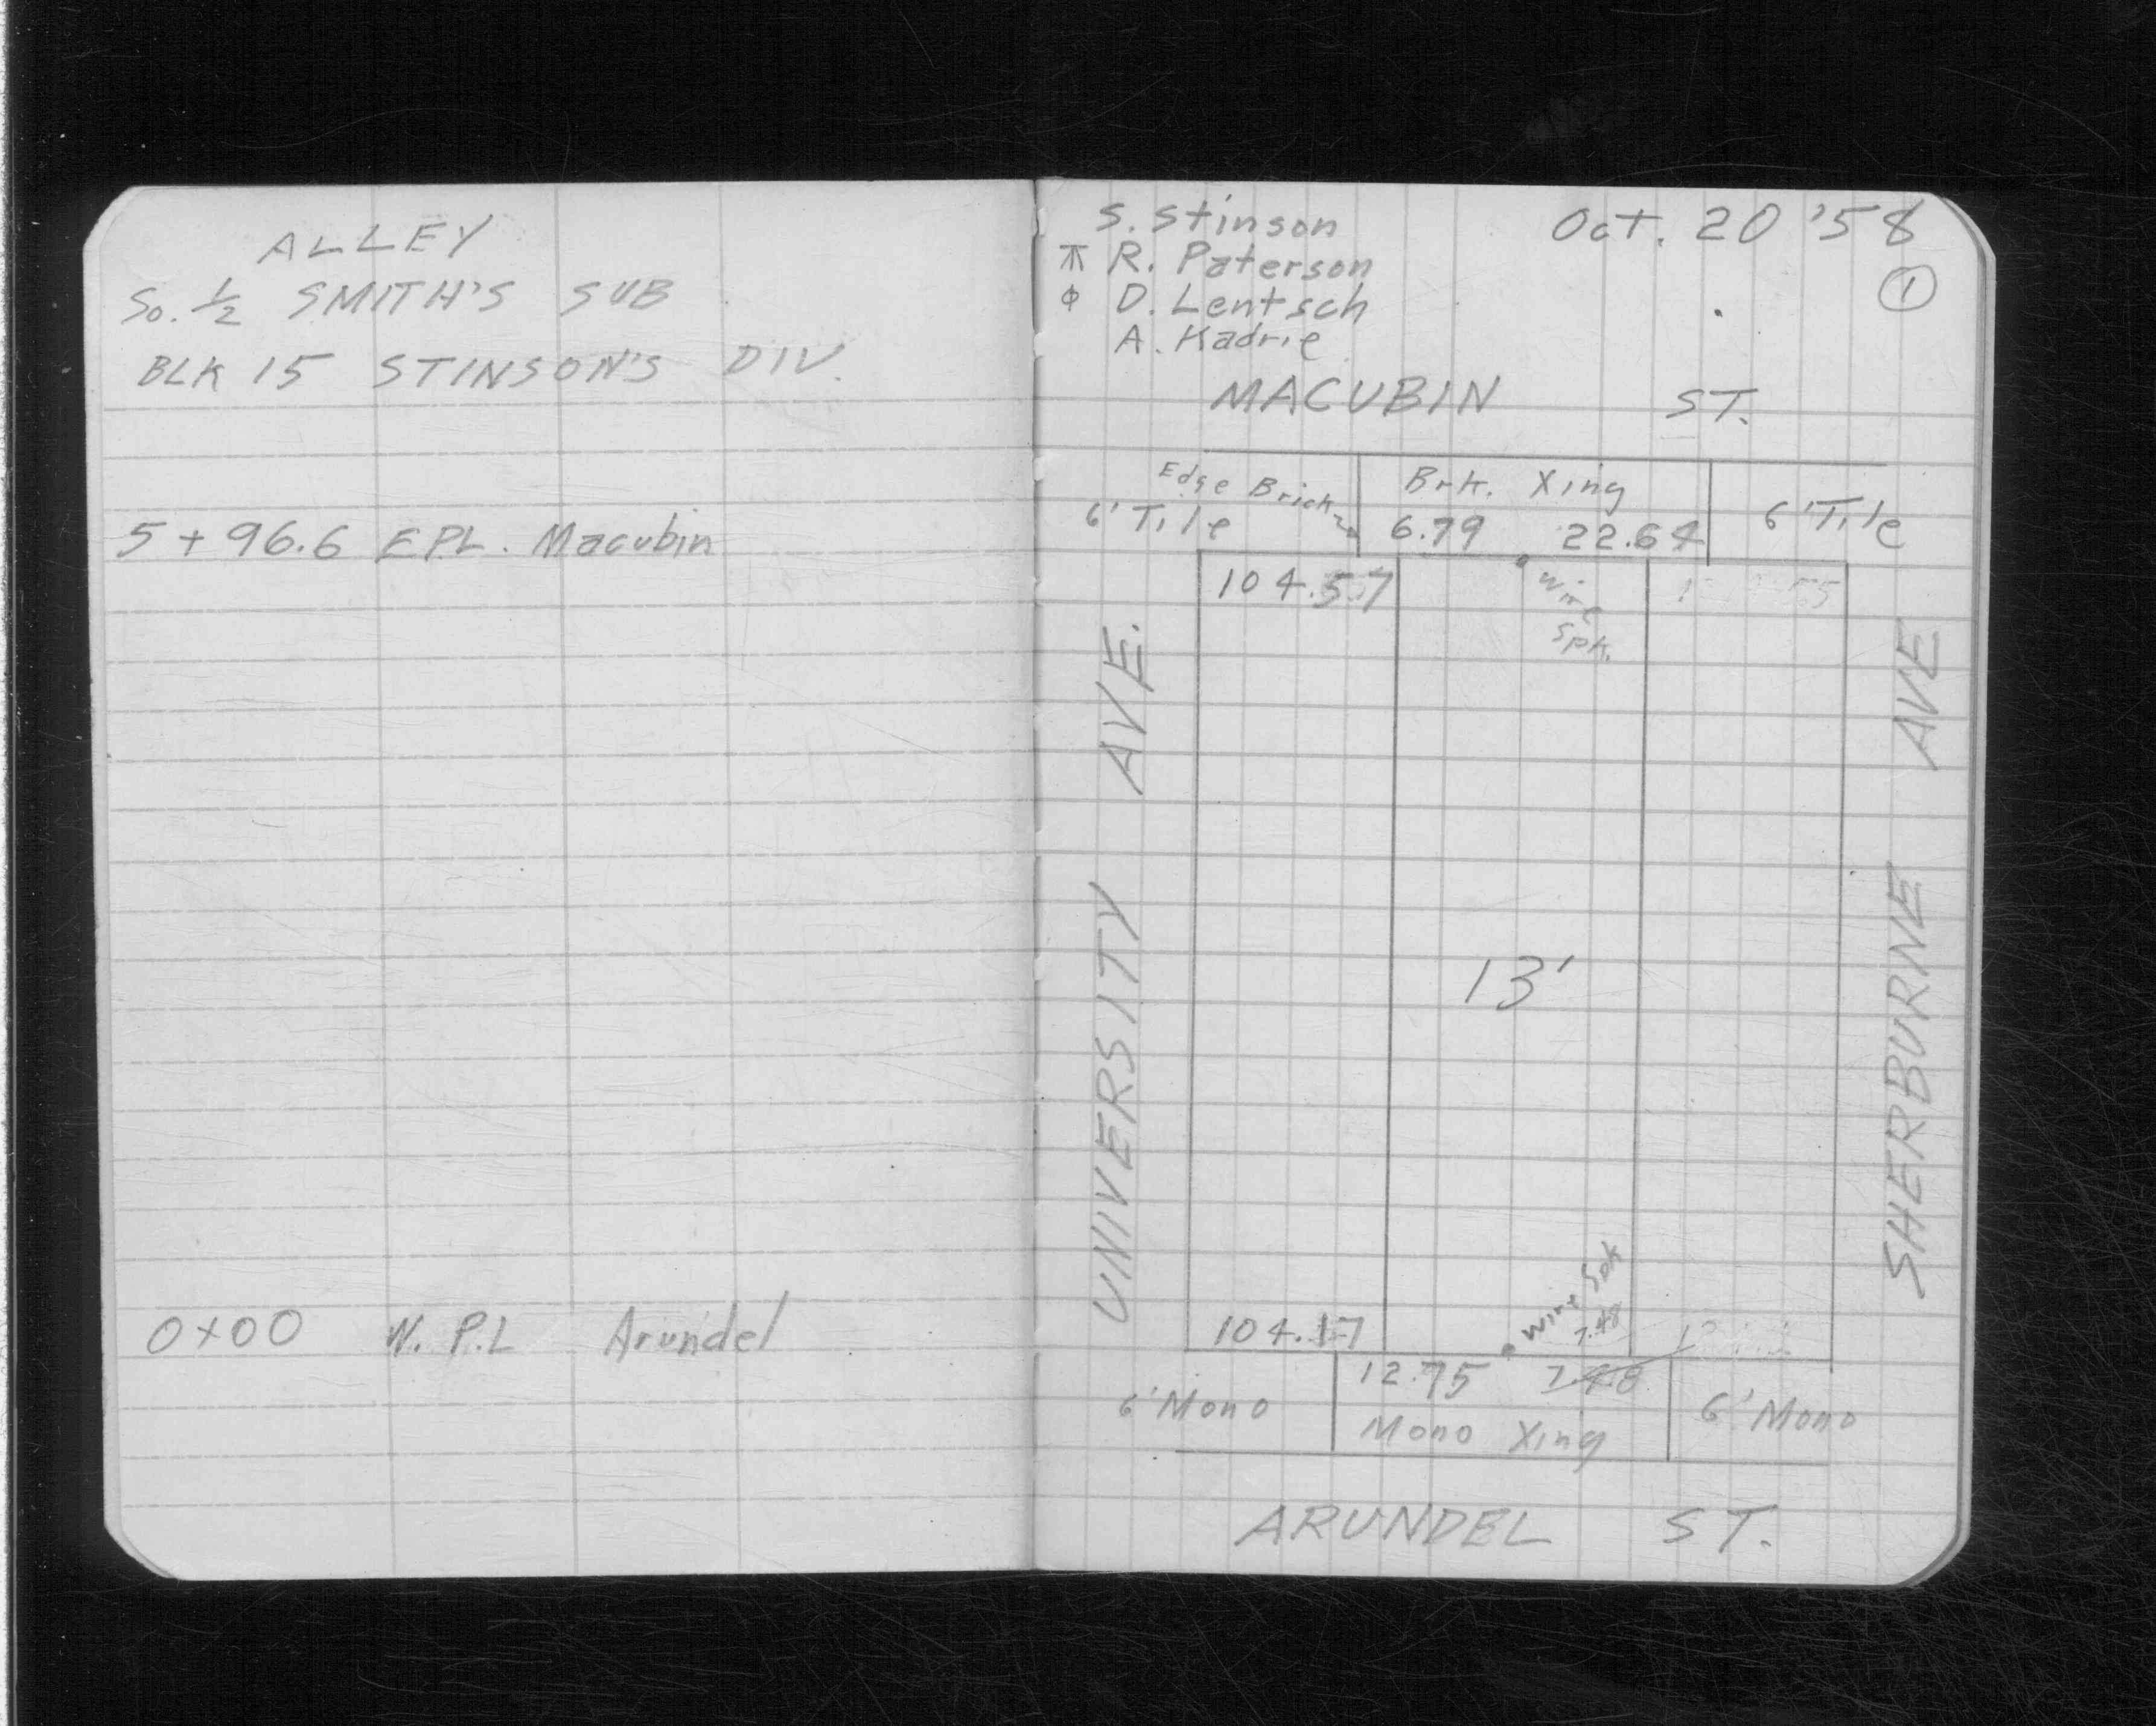 ALLEY
So. ½ SMITH'S SUB
BLK 15 STINSON'S DIV.
5+96.6 EPL. Macubin
0+00 W. P.L Arundel
S. Stinson
Oct. 20 '58
R. Paterson
①
ϕ D. Lentsch
A. Kadrie
MACUBIN ST.
Edge Brick
Brk. Xing
6' Tile
6.79 22.64
6' Tile
104.57
Wire
Spk.
UNIVERSITY AVE.
SHERBURNE AVE
13'
Wire Spk
7.48
104.17
12.75 7.48
6' Mono
Mono Xing
6' Mono
ARUNDEL ST.